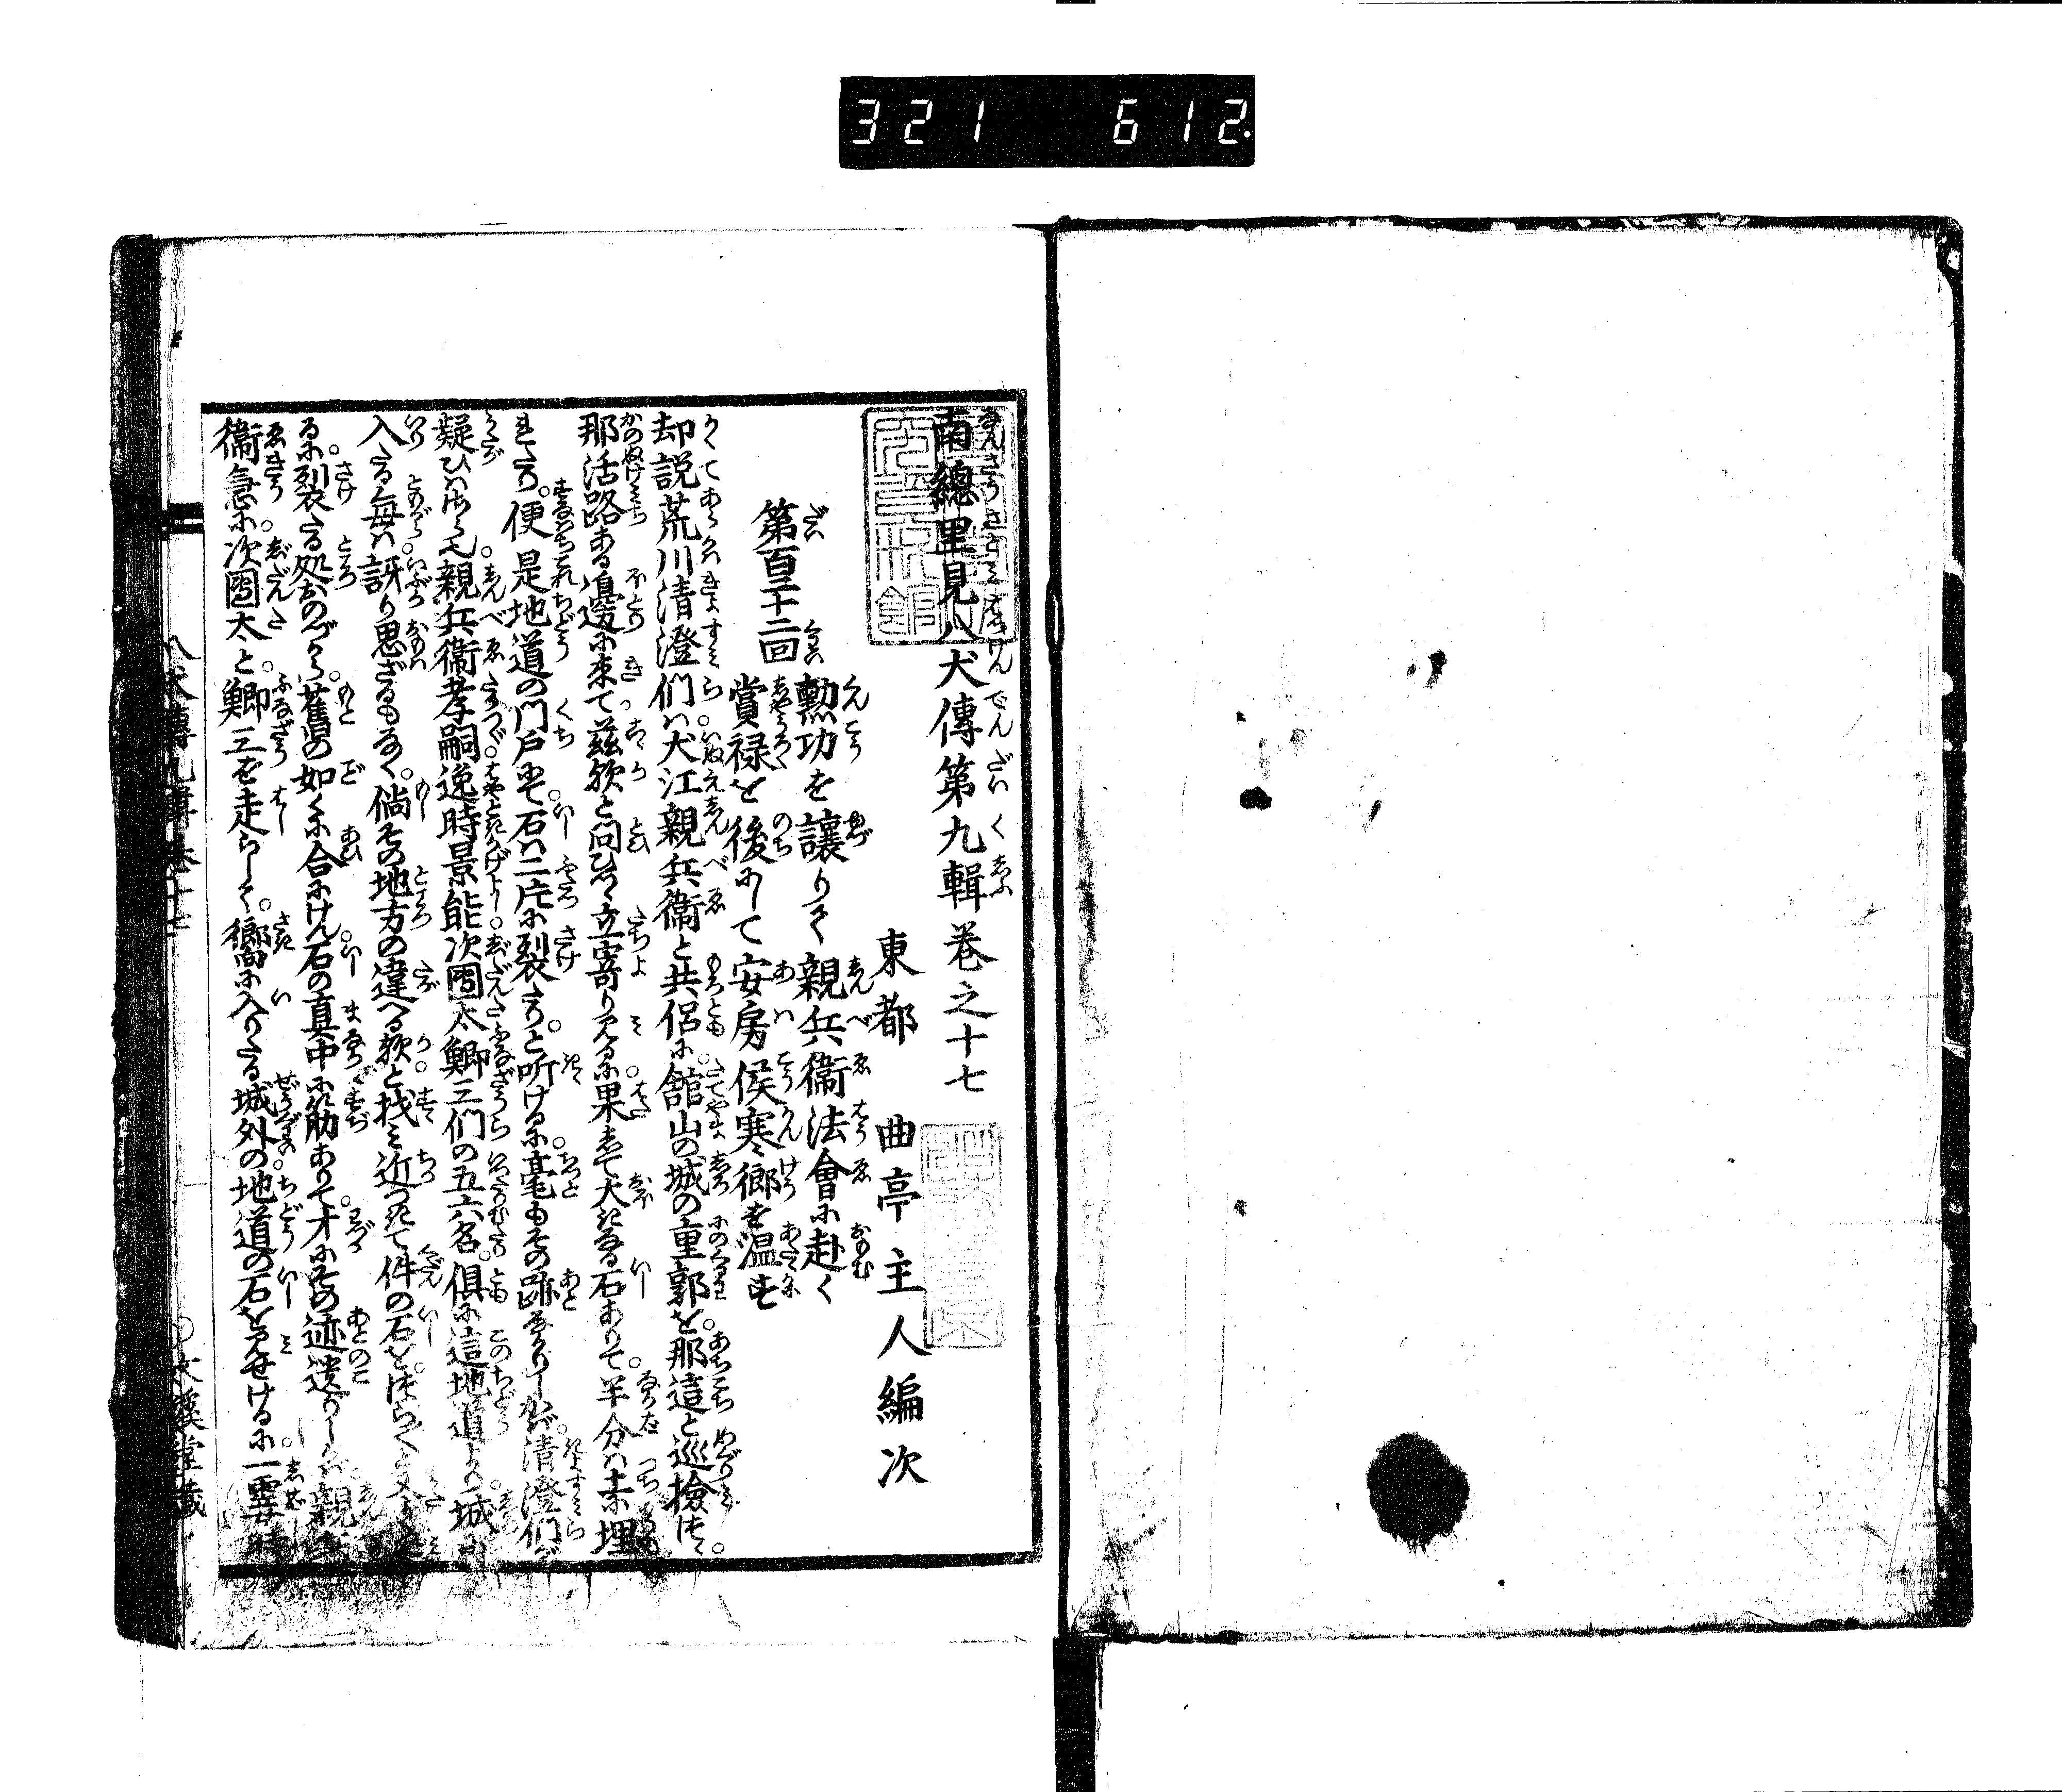 321 612
南總里見八犬傳第九輯巻之十七
東都 曲亭主人編次
第百二十二回
勲功を譲りて親兵衞法會に赴く
賞禄を後にして安房侯寒郷を温す
却説荒川清澄們ハ犬江親兵衞と共侶に。舘山の城の重郭を。那這と巡撿しつゝ。
那活路ある邉に来て茲歟と問ひつゝ立寄り見るに果して大きなる石ありて。半分ハ土に埋
れたり。便是地道の門戸にて。石ハ二片に裂たり。と听けるに。毫もその跡なかりしかバ。清澄們が
疑ひハさら也。親兵衞孝嗣逸時景能。次團太鯽三們の五六名。倶に這地道より。城に
入たる毎ハ。訝り思ざるもなく。倘その地方の違へる歟。と找ミ近づきて件の石を。つら〱と又
るに。裂たる処おのづから。舊の如くに合にけん。石の真中に筋ありて。才にその迹遺りしかバ。親兵
衞急に次團太と。鯽三を走らして。嚮に入りたる城外の。地道の石を見せけるに。一霎時
八犬傳九輯巻十七
文溪堂藏